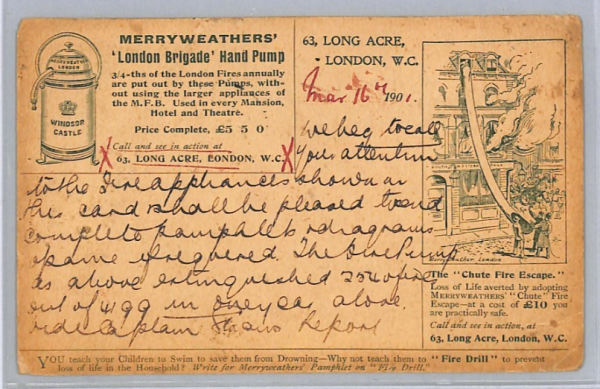 MERRYWEATHERS'
'London Brigade' Hand Pump
3/4-ths of the London Fires annually
are put out by these Pumps, with-
out using the larger appliances of
the M.F.B. Used in every Mansion,
Hotel and Theatre.
Price Complete, £5 5 0
Call and see in action at
63, LONG ACRE, LONDON, W.C.
MERRYWEATHERS
LONDON
WINDSOR
CASTLE
63, LONG ACRE,
LONDON, W.C.
Mar 16th 1901.
X
X
we beg to call
your attention
to the Fire appliances shown on
this card & shall be pleased to send
complete pamphlets & diagrams
of same if required. The Fire Pump
as above extinguished 2540 fires
out of 4199 in one year alone.
vide Captain Report
Merryweather London
The "Chute Fire Escape."
Loss of Life averted by adopting
MERRYWEATHERS' "Chute" Fire
Escape—at a cost of £10 you
are practically safe.
Call and see in action, at
63, Long Acre, London, W.C.
YOU teach your Children to Swim to save them from Drowning—Why not teach them to "Fire Drill" to prevent
loss of life in the Household? Write for Merryweathers' Pamphlet on "Fire Drill."